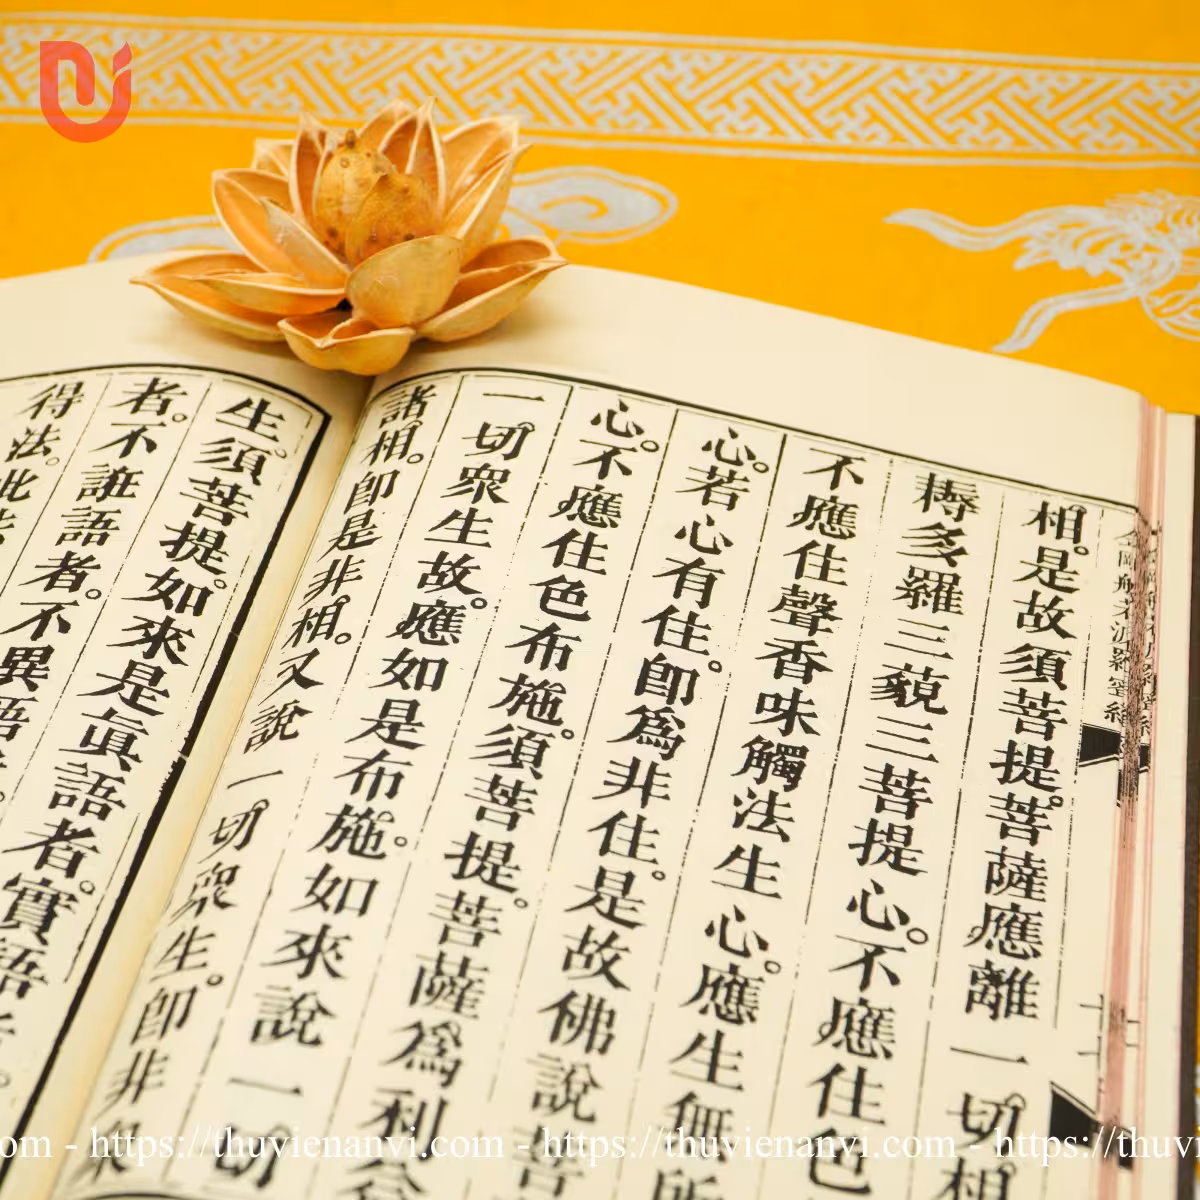 相。是故須菩提。菩薩應離一切相
耨多羅三藐三菩提心。不應住色
不應住聲香味觸法生心。應生無所
心。若心有住。卽爲非住。是故佛說菩
心。不應住色布施。須菩提。菩薩爲利益
一切衆生故。應如是布施。如來說一切
諸相。卽是非相。又說一切衆生。卽非衆
生。須菩提。如來是眞語者。實語
者。不誑語者。不異語
得法。此法
https://thuvienanvi.com - https://thuvienanvi.com - https://thuvi